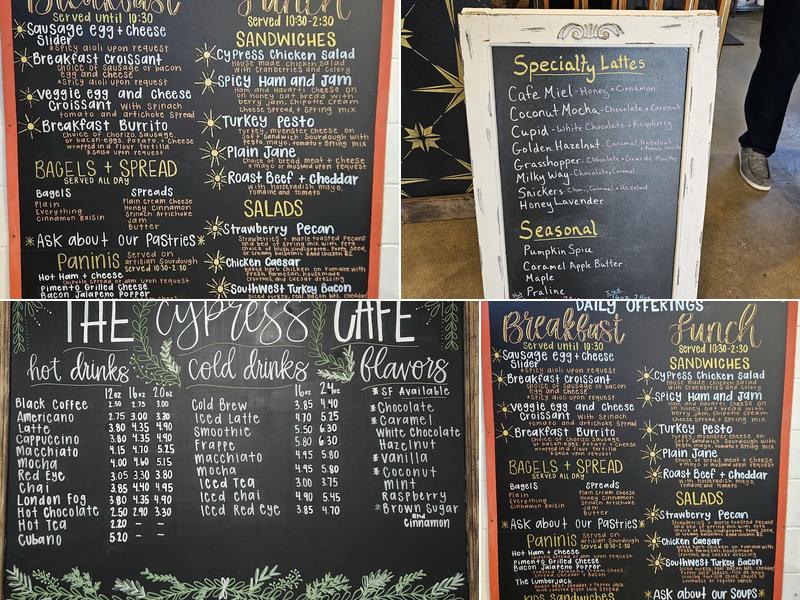 Breakfast
Served until 10:30
Sausage egg + cheese
Slider
*Spicy aioli upon request
Breakfast Croissant
Choice of sausage or bacon
egg and cheese
*Spicy aioli upon request
Veggie egg and cheese
Croissant with Spinach
tomato and artichoke Spread
Breakfast Burrito
Choice of chorizo, sausage,
or bacon-eggs, potato, + cheese
wrapped in a flour tortilla
*Salsa upon request
BAGELS + SPREAD
SERVED ALL DAY
Bagels
Plain
Everything
Cinnamon Raisin
Spreads
Plain cream cheese
Honey Cinnamon
Spinach Artichoke
Jam
Butter
*ASK about our Pastries*
Paninis Served on
artisian Sourdough
served 10:30-2:30
Hot Ham + cheese
pimento Grilled Cheese
Bacon Jalapeno Popper
Lunch
Served 10:30-2:30
SANDWICHES
Cypress Chicken Salad
House made chicken salad
with Cranberries and Celery
Spicy Ham and Jam
Ham and Havarti cheese on
on honey oat bread with
berry jam, chipotle cream
cheese spread, + spring mix
Turkey Pesto
Turkey, muenster cheese on
soft Sandwich Sourdough with
Pesto mayo, tomato + Spring mix
Plain Jane
Choice of bread meat + cheese
+ mayo or mustard upon request
Roast Beef + Cheddar
with horseradish mayo,
romaine and tomato
SALADS
Strawberry Pecan
Strawberries + maple toasted pecans
on a bed of spring mix with feta
Chicken Caesar
baked herb chicken on romaine with
fresh Parmesan, housemade
croutons, and Caesar dressing
Southwest Turkey Bacon
Specialty Lattes
Cafe Miel - Honey + Cinnamon
Coconut Mocha - Chocolate + Coconut
Cupid - White Chocolate + Raspberry
Golden Hazelnut - Caramel, Hazelnut
Grasshopper - Chocolate + Creme de Menthe
Milky Way - Chocolate, Caramel
Snickers - Choc., Caramel + Hazelnut
Honey Lavender
Seasonal
Pumpkin Spice
Caramel Apple Butter
Maple
Praline
THE Cypress CAFE
hot drinks
12oz 16oz 20oz
Black Coffee 2.50 2.75 3.00
Americano 2.75 3.00 3.30
Latte 3.80 4.35 4.90
Cappuccino 3.80 4.35 4.90
Macchiato 4.15 4.70 5.25
Mocha 4.00 4.60 5.15
Red Eye 3.05 3.30 3.80
Chai 3.85 4.40 4.95
London Fog 3.80 4.35 4.90
Hot Chocolate 2.50 2.90 3.30
Hot Tea 2.20 - -
Cubano 5.20 - -
cold drinks
16oz 24oz
Cold Brew 3.85 4.40
Iced Latte 4.70 5.25
Smoothie 5.50 6.30
Frappe 5.80 6.30
macchiato 4.95 5.80
mocha 4.95 5.80
Iced Tea 3.00 3.75
Iced chai 4.90 5.45
Iced Red eye 3.85 4.70
flavors
* SF Available
* Chocolate
* Caramel
White Chocolate
Hazelnut
* Vanilla
* Coconut
mint
Raspberry
* Brown Sugar
and
Cinnamon
DAILY OFFERINGS
Breakfast
Served until 10:30
Sausage egg + cheese
Slider
*Spicy aioli upon request
Breakfast Croissant
Choice of sausage or bacon
egg and cheese
*Spicy aioli upon request
Veggie egg and cheese
Croissant with Spinach
tomato and artichoke Spread
Breakfast Burrito
Choice of chorizo, sausage,
or bacon-eggs, potato, + cheese
wrapped in a flour tortilla
*Salsa upon request
BAGELS + SPREAD
SERVED ALL DAY
Bagels
Plain
Everything
Cinnamon Raisin
Spreads
Plain cream cheese
Honey Cinnamon
Spinach Artichoke
Jam
Butter
*ASK about our Pastries*
Paninis Served on
artisian Sourdough
served 10:30-2:30
Hot Ham + cheese
pimento Grilled Cheese
Bacon Jalapeno Popper
The Lumberjack
KIDS Sandwiches
Lunch
Served 10:30-2:30
SANDWICHES
Cypress Chicken Salad
House made chicken salad
with Cranberries and Celery
Spicy Ham and Jam
Ham and Havarti cheese on
on honey oat bread with
berry jam, chipotle cream
cheese spread, + spring mix
Turkey Pesto
Turkey, muenster cheese on
soft Sandwich Sourdough with
Pesto mayo, tomato + Spring mix
Plain Jane
Choice of bread meat + cheese
+ mayo or mustard upon request
Roast Beef + Cheddar
with horseradish mayo,
romaine and tomato
SALADS
Strawberry Pecan
Strawberries + maple toasted pecans
on a bed of spring mix with feta
Chicken Caesar
baked herb chicken on romaine with
fresh Parmesan, housemade
croutons, and Caesar dressing
Southwest Turkey Bacon
*ASK about our Soups